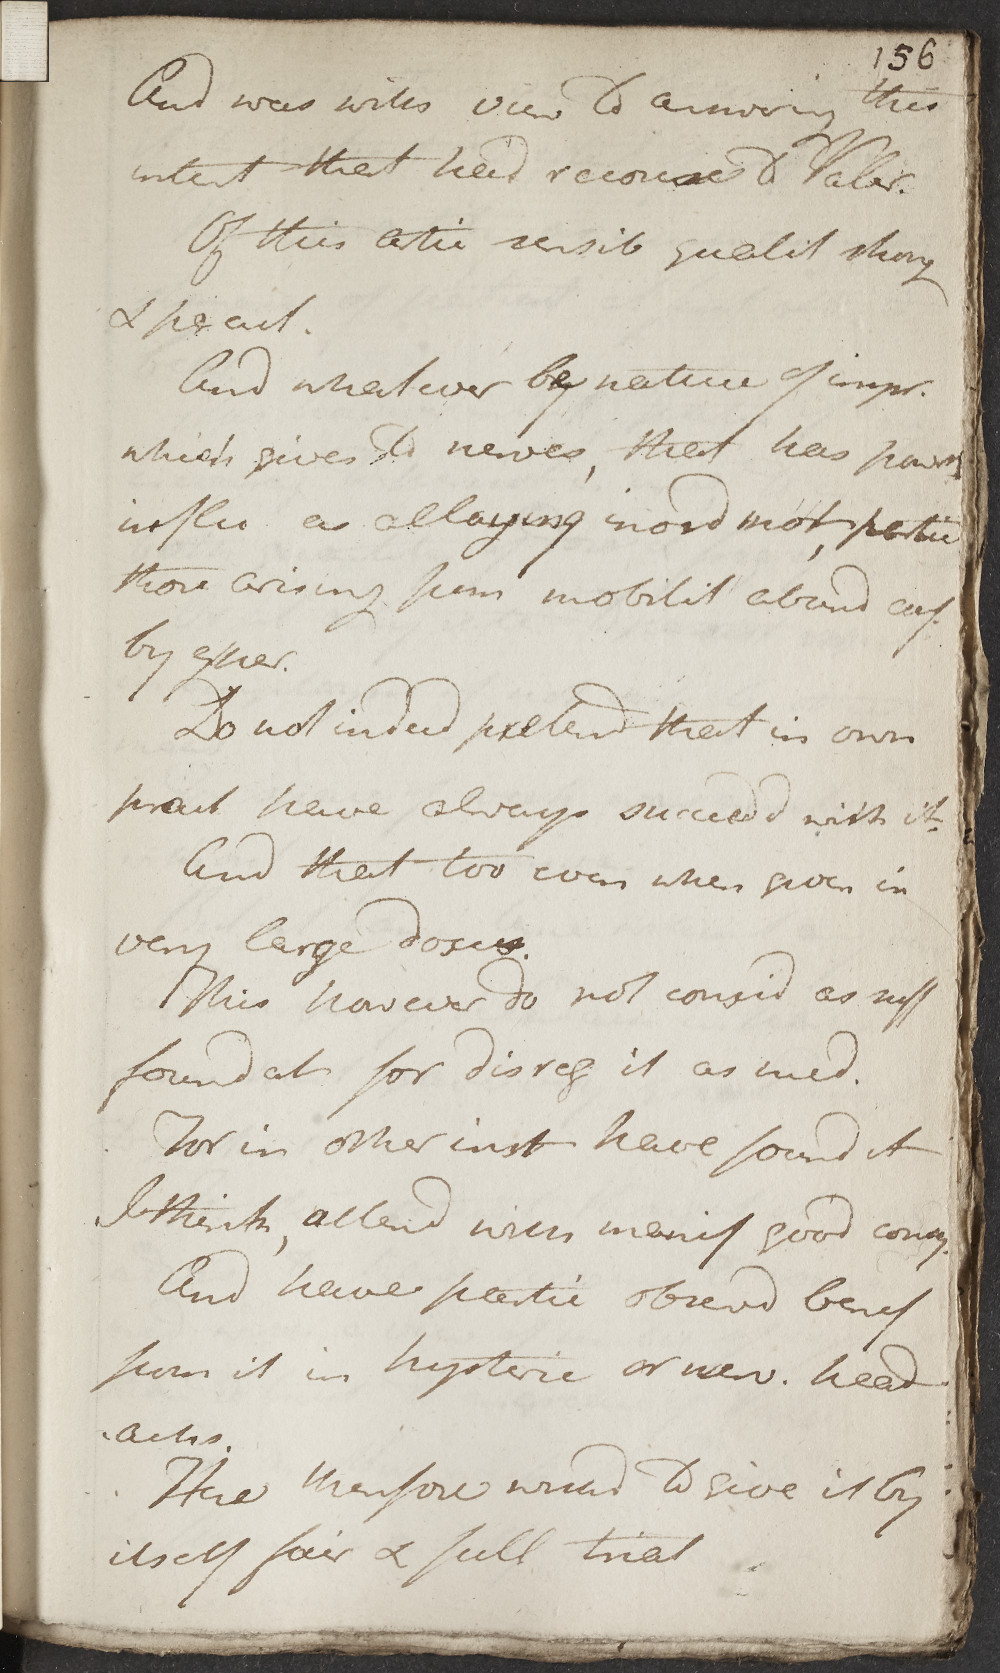 156
And was with view to answering this
intent that had recourse to Valer.
Of this artic sensib qualit strong
& pecul.
And whatever be nature of impr.
which gives to nerves, that has powers
influ as allaying inord mot, partic
those arising from mobilit abund
by exper.
Do not indeed pretend that in own
pract have always succeedd with it
And that too even when given in
very large doses.
This however do not consid as suff
foundatn for disreg it as med.
For in other inst have found it
I think, attend with manif good conseq.
And have partic observd benef
from it in hysteric or nerv. head
achs.
Here therefore would to give it by
itself fair & full trial